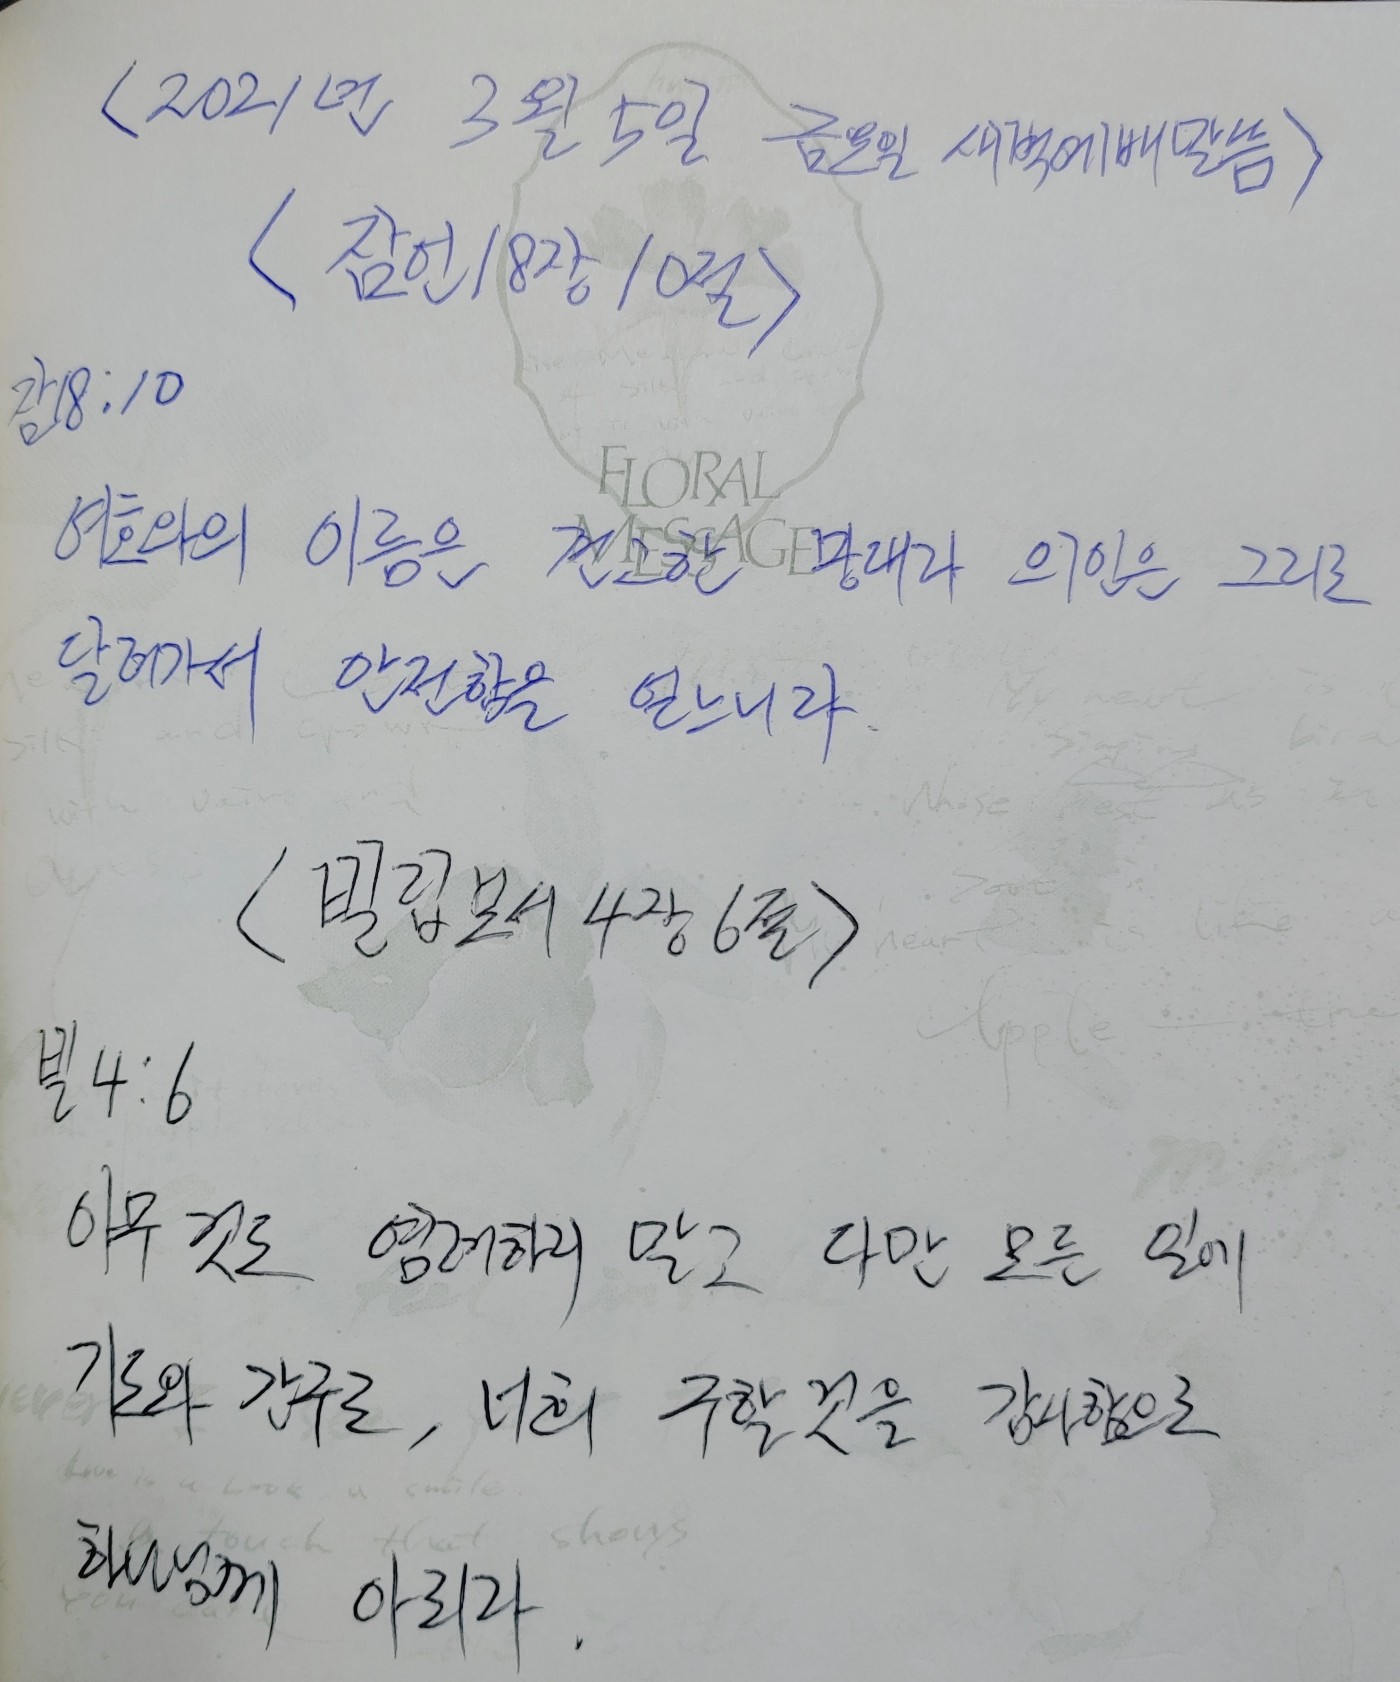 <2021년 3월 5일 금요일 새벽예배말씀>
<잠언18장10절>
FLORAL
MESSAGE
잠18:10
여호와의 이름은 견고한 망대라 의인은 그리로
달려가서 안전함을 얻느니라.
<빌립보서4장6절>
빌4:6
아무 것도 염려하지 말고 다만 모든 일에
기도와 간구로, 너희 구할것을 감사함으로
하나님께 아뢰라.
love is a look a smile
touch that shows